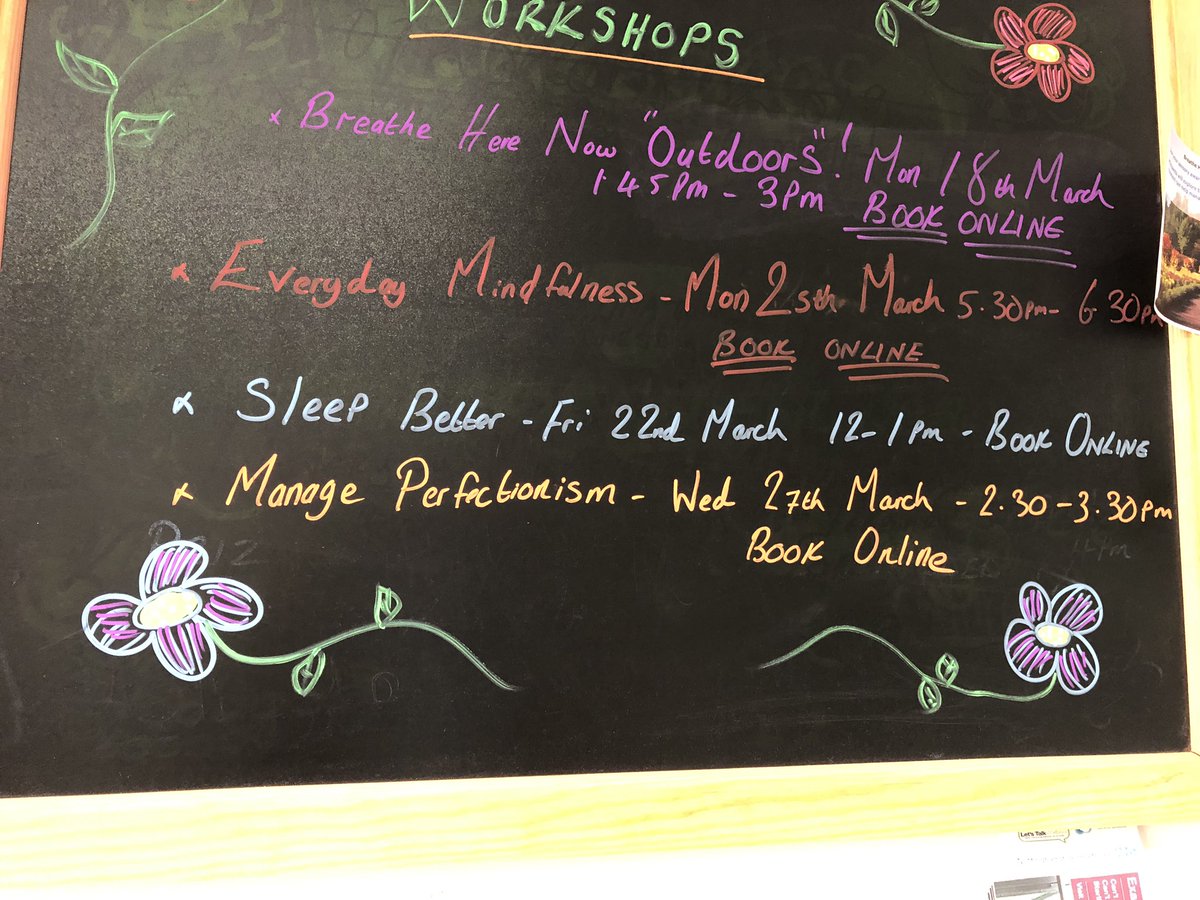 WORKSHOPS
× Breathe Here Now "Outdoors"! Mon 18th March
1.45pm - 3pm BOOK ONLINE
× Everyday Mindfulness - Mon 25th March 5.30pm - 6.30pm
BOOK ONLINE
× Sleep Better - Fri 22nd March 12-1pm - Book Online
× Manage Perfectionism - Wed 27th March - 2.30 - 3.30pm
Book Online
Let's Talk